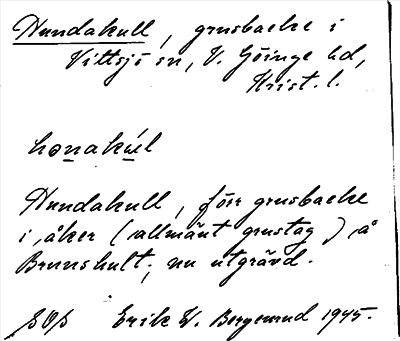 Hundakull, grusbacke i
Vittsjö sn, V. Göinge hd,
Krist. l.
honakúl
Hundakull, förr grusbacke
i åker (allmänt grustag) å
Brunshult; nu utgrävd.
Erik W. Bergenrud 1945.